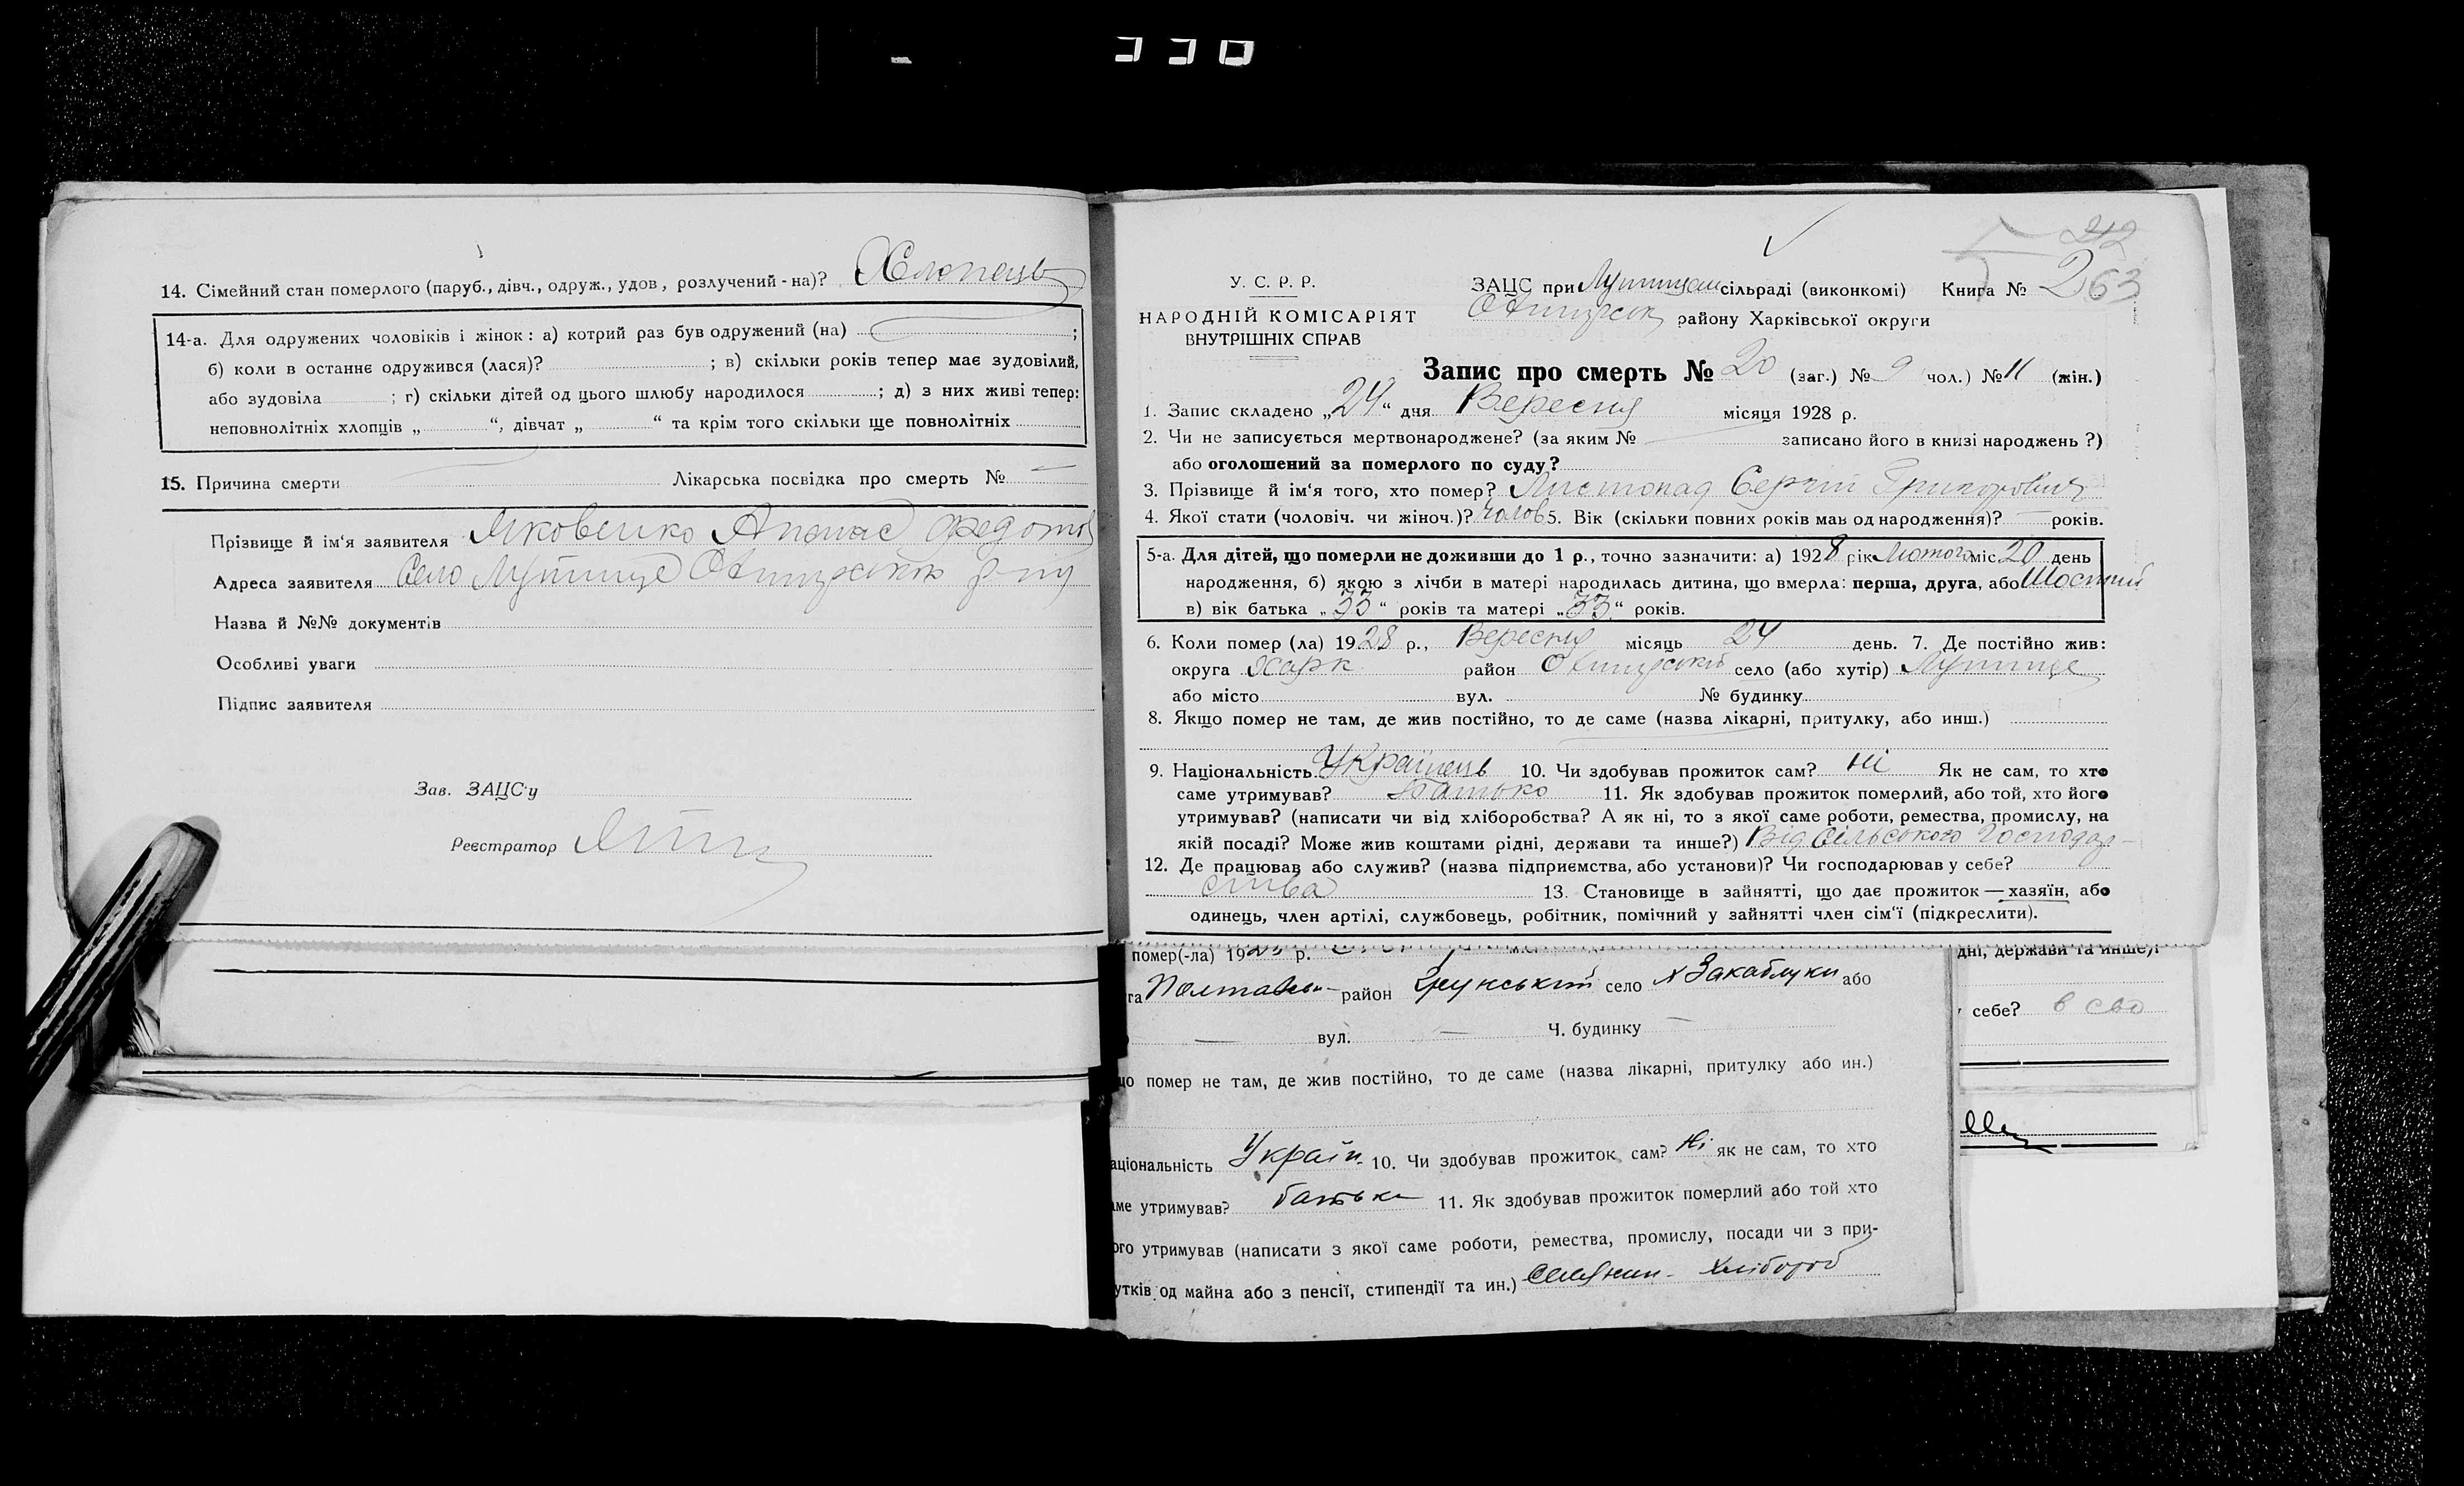 14. Сімейний стан померлого (паруб., дівч., одруж., удов, розлучений - на)? Хлопець
14-а. Для одружених чоловіків і жінок: а) котрий раз був одружений (на) ;
б) коли в останнє одружився (лася)? ; в) скільки років тепер має зудовілий,
або зудовіла ; г) скільки дітей од цього шлюбу народилося ; д) з них живі тепер:
неповнолітніх хлопців „ “, дівчат „ “ та крім того скільки ще повнолітніх
15. Причина смерти Лікарська посвідка про смерть № —
Прізвище й ім'я заявителя Яковенко Апанас Федотов
Адреса заявителя Село Лутище Охтирськ р-ну
Назва й №№ документів
Особливі уваги
Підпис заявителя
Зав. ЗАЦС'у
Реєстратор
У. С. Р. Р.
НАРОДНІЙ КОМІСАРІЯТ
ВНУТРІШНІХ СПРАВ
242
ЗАЦС при Лутищан сільраді (виконкомі) Книга № 263
Охтирськ району Харківської округи
Запис про смерть № 20 (заг.) № 9 чол.) № 11 (жін.)
1. Запис складено „24“ дня Вересня місяця 1928 р.
2. Чи не записується мертвонароджене? (за яким № записано його в книзі народжень ?)
або оголошений за померлого по суду?
3. Прізвище й ім'я того, хто помер? Листопад Сергій Григорович
4. Якої стати (чоловіч. чи жіноч.)? чолов 5. Вік (скільки повних років мав од народження)? — років.
5-а. Для дітей, що померли не доживши до 1 р., точно зазначити: а) 1928 рік Лютого міс 20 день
народження, б) якою з лічби в матері народилась дитина, що вмерла: перша, друга, або Шостий
в) вік батька „33“ років та матері „33“ років.
6. Коли помер (ла) 1928 р., Вересня місяць 24 день. 7. Де постійно жив:
округа Харк район Охтирський село (або хутір) Лутище
або місто вул. № будинку
8. Якщо помер не там, де жив постійно, то де саме (назва лікарні, притулку, або инш.)
9. Національність Українець 10. Чи здобував прожиток сам? ні Як не сам, то хто
саме утримував? Батько 11. Як здобував прожиток померлий, або той, хто його
утримував? (написати чи від хліборобства? А як ні, то з якої саме роботи, ремества, промислу, на
якій посаді? Може жив коштами рідні, держави та инше?) Від Сільського Господар-
12. Де працював або служив? (назва підприємства, або установи)? Чи господарював у себе?
ства 13. Становище в зайнятті, що дає прожиток — хазяїн, або
одинець, член артілі, службовець, робітник, помічний у зайнятті член сім'ї (підкреслити).
помер(-ла) 192 р.
дні, держави та инше)?
га Полтавськ район Грунський село х Закаблуки або
себе? в сво
— вул. — Ч. будинку —
що помер не там, де жив постійно, то де саме (назва лікарні, притулку або ин.)
аціональність Україн 10. Чи здобував прожиток сам? Ні як не сам, то хто
аме утримував? батько 11. Як здобував прожиток померлий або той хто
ого утримував (написати з якої саме роботи, ремества, промислу, посади чи з при-
утків од майна або з пенсії, стипендії та ин.) Селянин - хлібороб